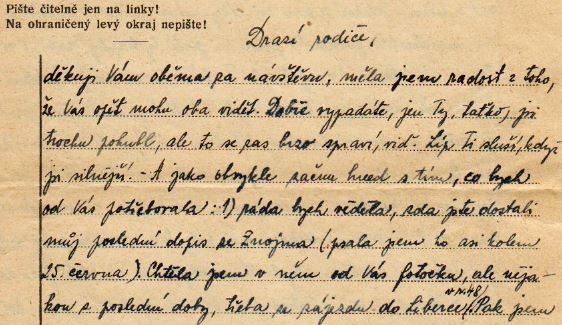 Pište čitelně jen na linky!
Na ohraničený levý okraj nepište!
Drazí rodiče,
děkuji Vám oběma za návštěvu, měla jsem radost z toho,
že Vás opět mohu oba vidět. Dobře vypadáte, jen Ty, taťko, jsi
trochu pohubl, ale to se zas brzo spraví, viď. Líp Ti sluší, když
jsi silnější. - A jako obvykle začnu hned s tím, co bych
od Vás potřebovala: 1) ráda bych věděla, zda jste dostali
můj poslední dopis ze Znojma (psala jsem ho asi kolem
25. června). Chtěla jsem v něm od Vás fotočku, ale něja-
kou z poslední doby, třeba ze zájezdu do Liberce
v r. 48). Pak jsem